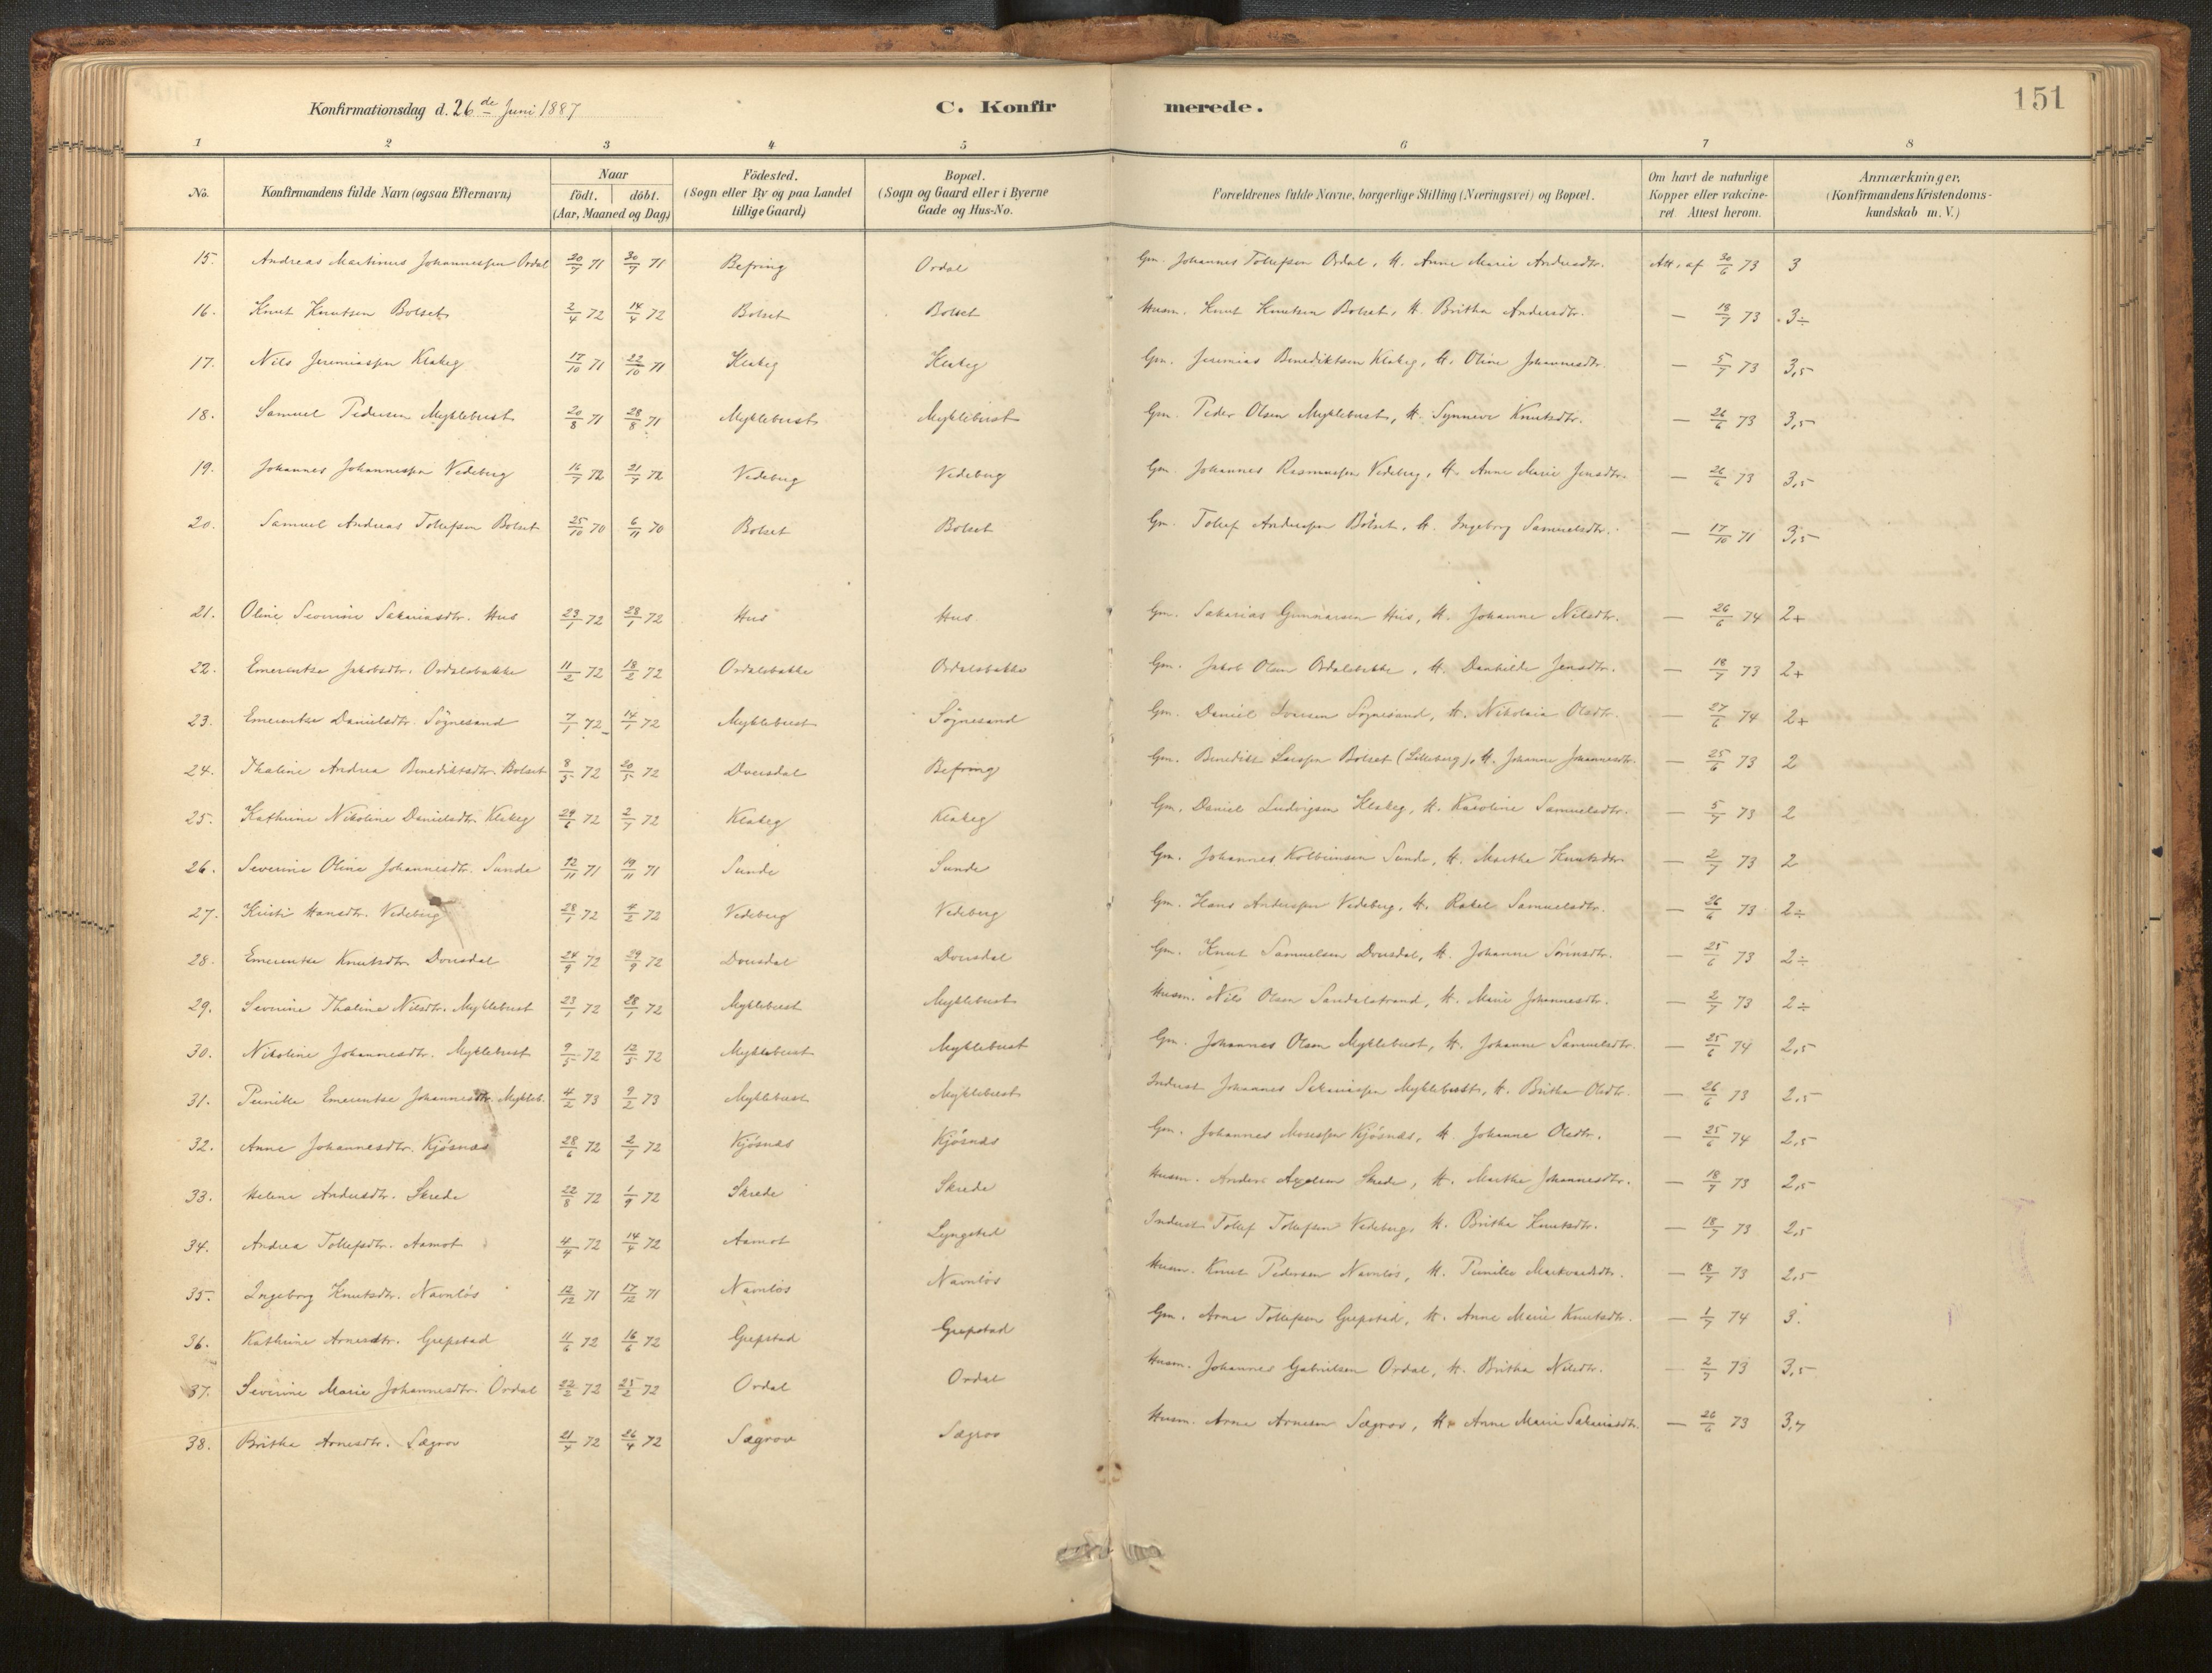 Konfirmationsdag d. 26de Juni 1887
C. Konfirmerede.
151
1 2 3 4 5 6 7 8
No. Konfirmandens fulde Navn (ogsaa Efternavn) Naar födt. döbt. (Aar, Maaned og Dag) Födested. (Sogn eller By og paa Landet tillige Gaard) Bopæl. (Sogn og Gaard eller i Byerne Gade og Hus-No. Forældrenes fulde Navne, borgerlige Stilling (Næringsvei) og Bopæl. Om havt de naturlige Kopper eller vakcineret. Attest herom. Anmærkninger. (Konfirmandens Kristendomskundskab m. V.)
15. Andreas Martinus Johannessen Ordal 20/7 71 30/7 71 Befring Ordal Gm. Johannes Tollefsen Ordal, H. Anne Marie Andersdtr. Att. af 30/6 73 3
16. Knut Knutsen Bolset 2/4 72 14/4 72 Bolset Bolset Husm. Knut Knutsen Bolset, H. Britha Andersdtr. — 18/7 73 3÷
17. Nils Jeremiassen Klakeg 17/10 71 22/10 71 Klakeg Klakeg Gm. Jeremias Benediktsen Klakeg, H. Oline Johannesdtr. — 5/7 73 3,5
18. Samuel Pedersen Myklebust 20/8 71 28/8 71 Myklebust Myklebust Gm. Peder Olsen Myklebust, H. Synneve Knutsdtr. — 26/6 73 3,5
19. Johannes Johannessen Vedeberg 16/7 72 21/7 72 Vedeberg Vedeberg Gm. Johannes Rasmussen Vedeberg, H. Anne Marie Jensdtr. — 26/6 73 3,5
20. Samuel Andreas Tollefsen Bolset 25/10 70 6/11 70 Bolset Bolset Gm. Tollef Anderssen Bolset, H. Ingeborg Samuelsdtr. — 17/10 71 3,5
21. Oline Severine Sakariasdtr. Hus 23/1 72 28/1 72 Hus Hus Gm. Sakarias Gunnarsen Hus, H. Johanne Nilsdtr. — 26/6 74 2+
22. Emerentse Jakobsdtr. Ordalsbakke 11/2 72 18/2 72 Ordalsbakke Ordalsbakke Gm. Jakob Olsen Ordalsbakke, H. Danhilde Jensdtr. — 18/7 73 2+
23. Emerentse Danielsdtr. Sögnesand 7/1 72 14/1 72 Myklebust Sögnesand Gm. Daniel Iversen Sognesand, H. Nikolaia Olsdtr. — 27/6 74 2+
24. Thaline Andrea Benediktsdtr. Bolset 8/5 72 20/5 72 Dversdal Befring Gm. Benedikt Larssen Bolset (Lilleberg), H. Johanne Johannesdtr. — 25/6 73 2
25. Kathrine Nikoline Danielsdtr. Klakeg 29/6 72 2/7 72 Klakeg Klakeg Gm. Daniel Ludvigsen Klakeg, H. Karoline Samuelsdtr. — 5/7 73 2
26. Severine Oline Johannesdtr. Sunde 12/11 71 19/11 71 Sunde Sunde Gm. Johannes Kolbeinsen Sunde, H. Marthe Knutsdtr. — 2/7 73 2
27. Kristi Hansdtr. Vedeberg 28/1 72 4/2 72 Vedeberg Vedeberg Gm. Hans Anderssen Vedeberg, H. Rakel Samuelsdtr. — 26/6 73 2÷
28. Emerentse Knutsdtr. Dversdal 24/9 72 29/9 72 Dversdal Dversdal Gm. Knut Samuelsen Dversdal, H. Johanne Sörensdtr. — 25/6 73 2÷
29. Severine Thaline Nilsdtr. Myklebust 23/1 72 28/1 72 Myklebust Myklebust Husm. Nils Olsen Sandalstrand, H. Marie Johannesdtr. — 2/7 73 2÷
30. Nikoline Johannesdtr. Myklebust 9/5 72 12/5 72 Myklebust Myklebust Gm. Johannes Olsen Myklebust, H. Johanne Samuelsdtr. — 25/6 74 2,5
31. Pernille Emerentse Johannesdtr. Mykleb. 4/2 73 9/2 73 Myklebust Myklebust Inderst Johannes Sakariassen Myklebust, H. Britha Olsdtr. — 26/6 73 2,5
32. Anne Johannesdtr. Kjösnæs 28/6 72 2/7 72 Kjösnæs Kjösnæs Gm. Johannes Mosessen Kjösnæs, H. Johanne Olsdtr. — 25/6 74 2,5
33. Helene Andersdtr. Skrede 22/8 72 1/9 72 Skrede Skrede Husm. Anders Axelsen Skrede, H. Marthe Johannesdtr. — 18/7 73 2,5
34. Andrea Tollefsdtr. Aamot 4/4 72 14/4 72 Aamot Lyngstad Inderst Tollef Tollefsen Vedeberg, H. Britha Knutsdtr. — 18/7 73 2,5
35. Ingeborg Knutsdtr. Navnlös 12/12 71 17/12 71 Navnlös Navnlös Husm. Knut Pedersen Navnlös, H. Pernille Markvardsdtr. — 18/7 73 2,5
36. Kathrine Arnesdtr. Grepstad 11/6 72 16/6 72 Grepstad Grepstad Gm. Arne Tollefsen Grepstad, H. Anne Marie Knutsdtr. — 1/7 74 3.
37. Severine Marie Johannesdtr. Ordal 22/2 72 25/2 72 Ordal Ordal Husm. Johannes Gabrielsen Ordal, H. Britha Nilsdtr. — 2/7 73 3,5
38. Britha Arnesdtr. Sægrov 21/4 72 26/4 72 Sægrov Sægrov Husm. Arne Arnesen Sægrov, H. Anne Marie Sakariasdtr. — 26/6 73 3,7